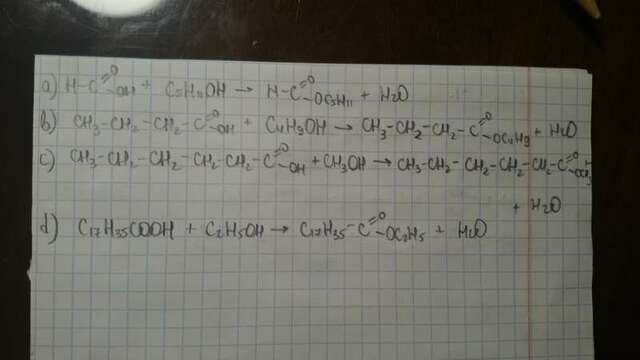 a) H-C(=O)-OH + C5H11OH → H-C(=O)-OC5H11 + H2O
b) CH3-CH2-CH2-C(=O)-OH + C4H9OH → CH3-CH2-CH2-C(=O)-OC4H9 + H2O
c) CH3-CH2-CH2-CH2-CH2-C(=O)-OH + CH3OH → CH3-CH2-CH2-CH2-CH2-C(=O)-OCH3
+ H2O
d) C17H35COOH + C2H5OH → C17H35-C(=O)-OC2H5 + H2O